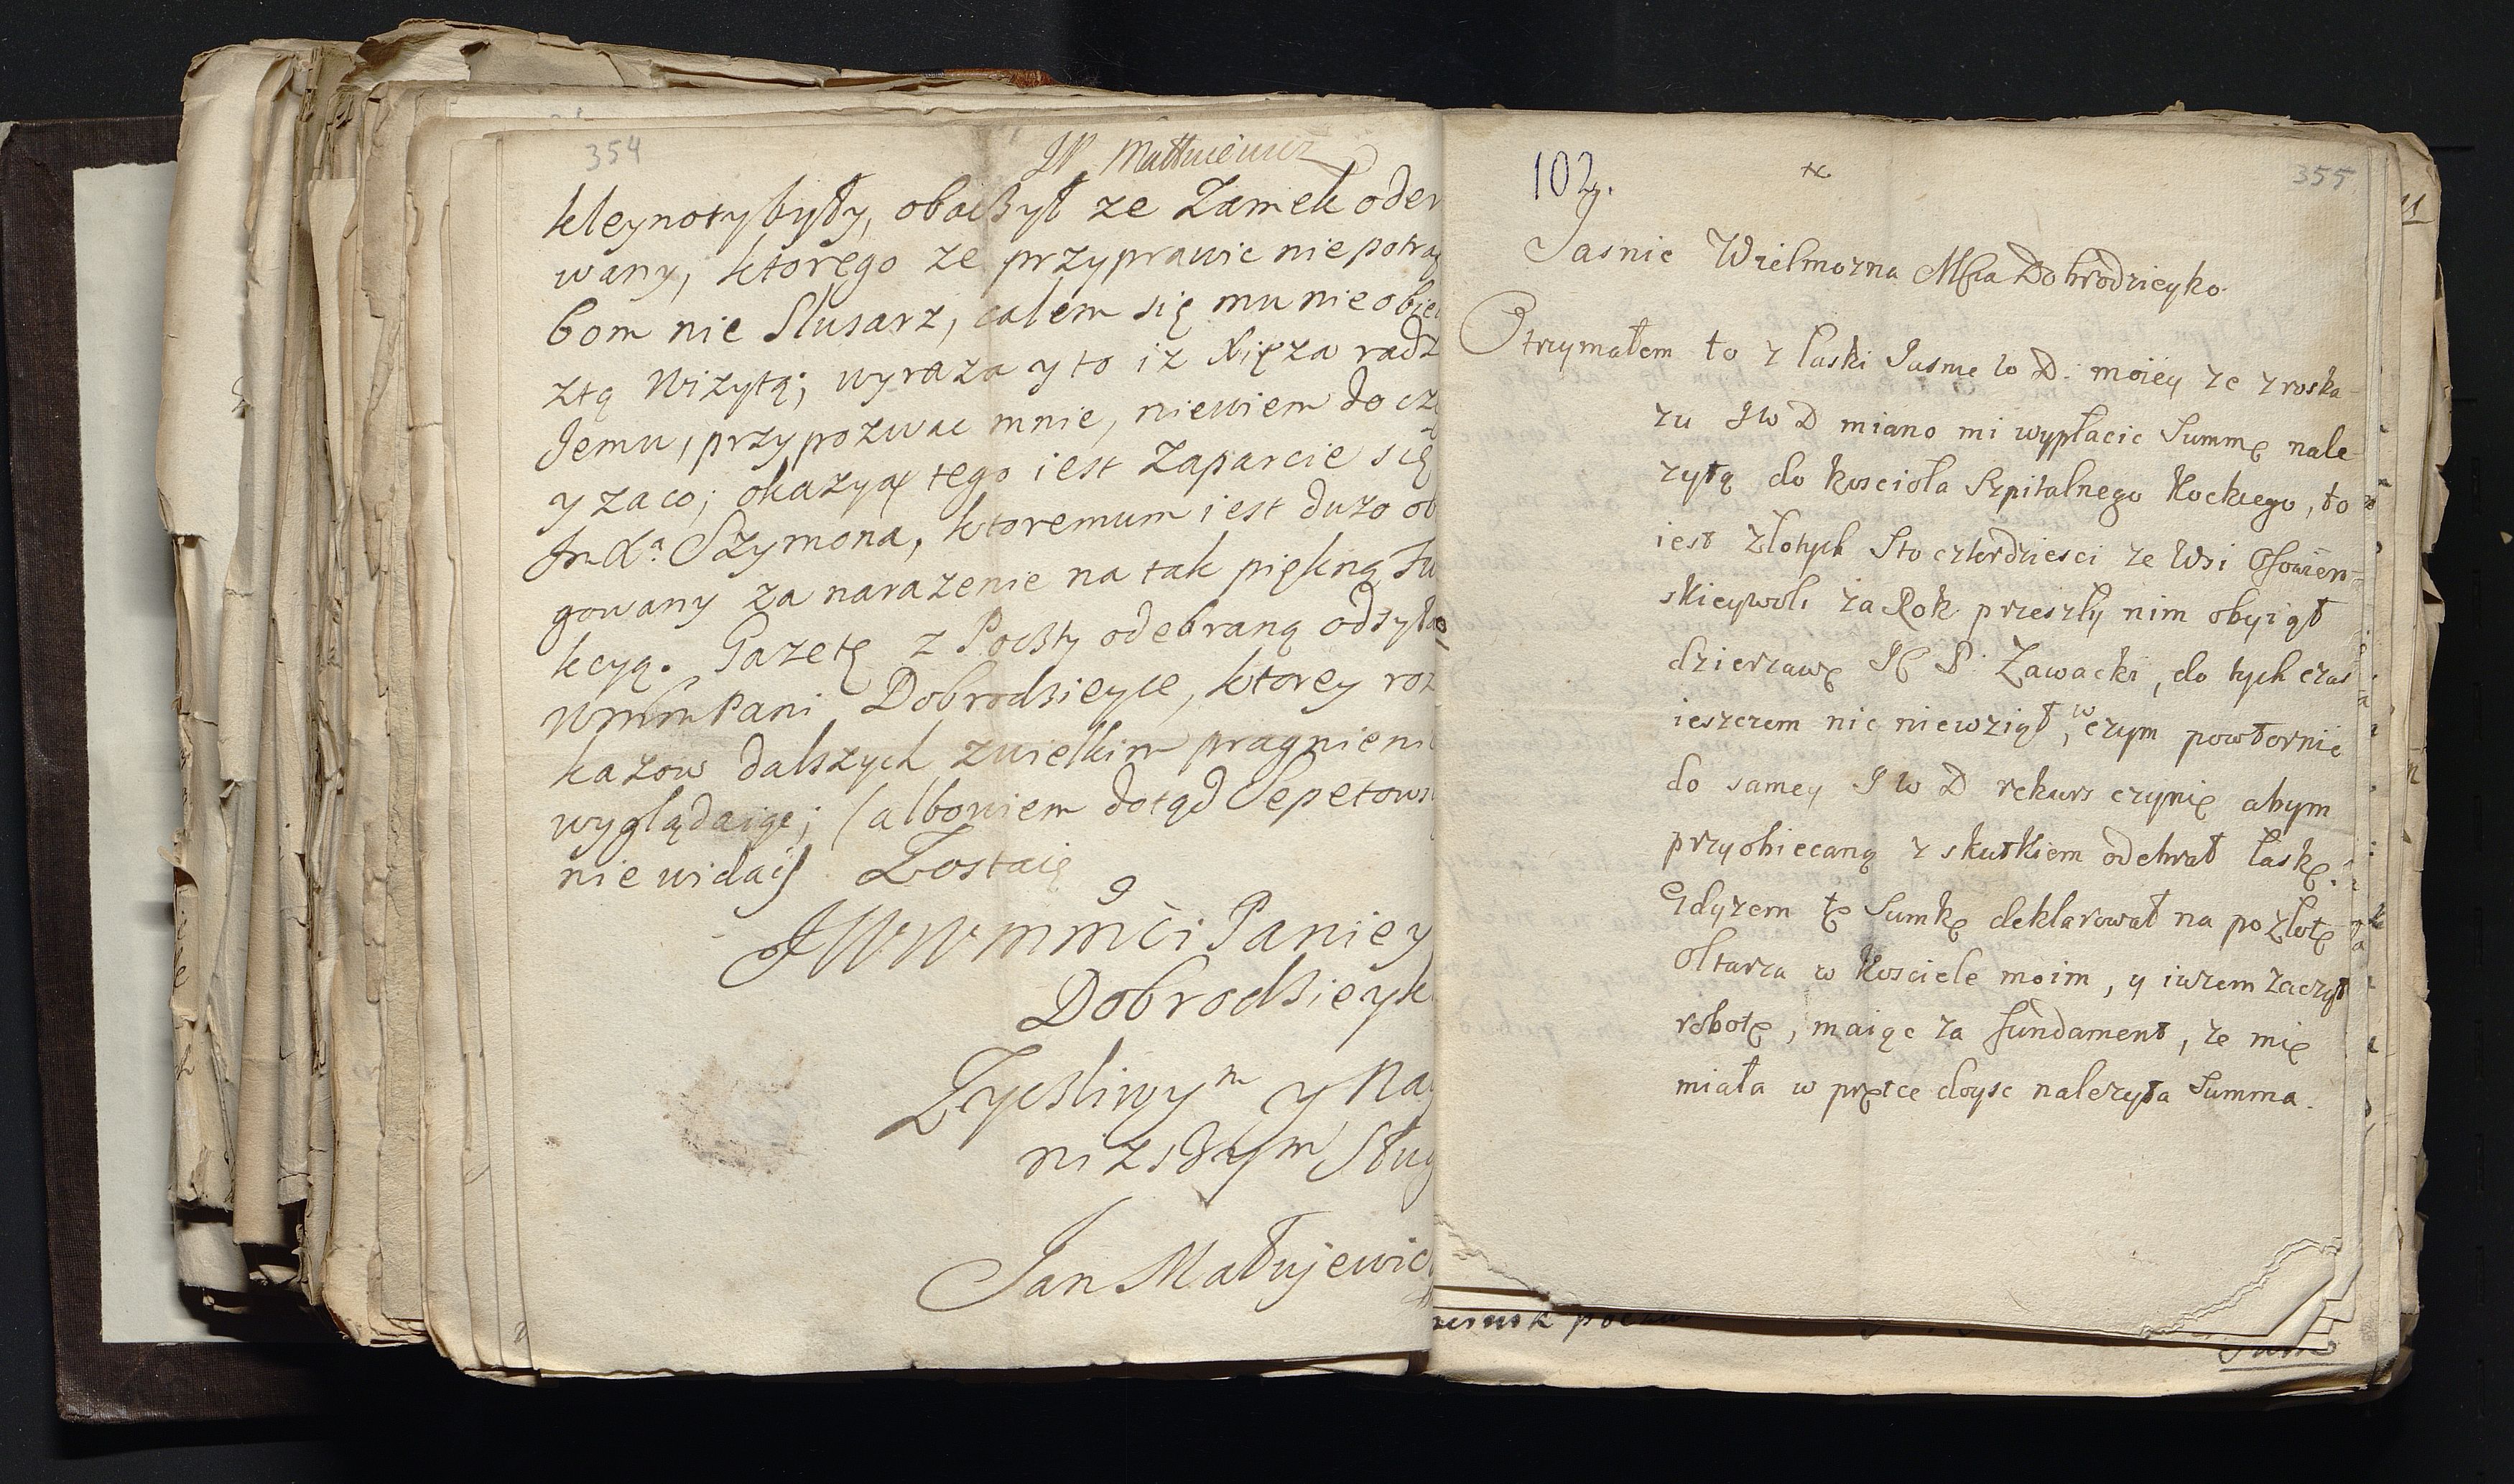 354
JP Mattuiewicz
kleynoty były, obaczył ze Zamek oder
wany, ktorego ze przyprawic niepotra
bom nie Slusarz, calem się mu nie obie
ztą Wizytą; wyraza y to iz Xięza radz
Jemu, przypozwac mnie, niewiem do cze
y za co; okazyą tego iest zaparcie się
Szymona, ktoremum iest duzo ob
gowany za narazenie na tak piękną fu
kcyą. Gazetę z Poczty odebraną odsyła
Wmm Pani Dobrodzieyce, ktorey roz
kazow dalszych zwielkim pragnieni
wyglądaiąc; (albowiem dotąd Sepetows
nie widac) Zostaię
JWWmmci Paniey
Dobrodzieyk
Zyczliwym y Nay
nizszym Sług
Jan Matujewic
102.
355
Jasnie Wielmozna Mscia Dobrodzieyko.
Otrzymałem to z laski Jasnie W D. moiey ze z roska-
zu J W D miano mi wypłacic Summę nale-
zytą do koscioła Szpitalnego Kockiego, to
iest Złotych Sto czterdziesci ze Wsi Osowien-
skieywoli za Rok przeszły nim obyiął
dzierzawę J P Zawacki, do tych czas
ieszczem nic niewziął, w czym powtornie
do samey J W D rekurs czynię abym
przyobiecaną z skutkiem odebrał łaskę.
Gdyzem tę Sumkę deklarował na pozlotę
Oltarza w Kosciele moim, y iuzem zaczął
robotę, maiąc za fundament, ze mię
miała w prętce doysc nalezyta Summa.